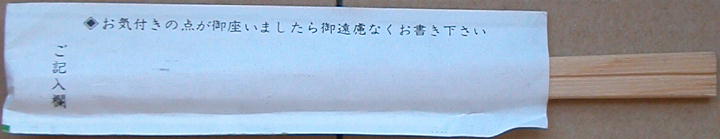 ◈お気付きの点が御座いましたら御遠慮なくお書き下さい
ご記入欄